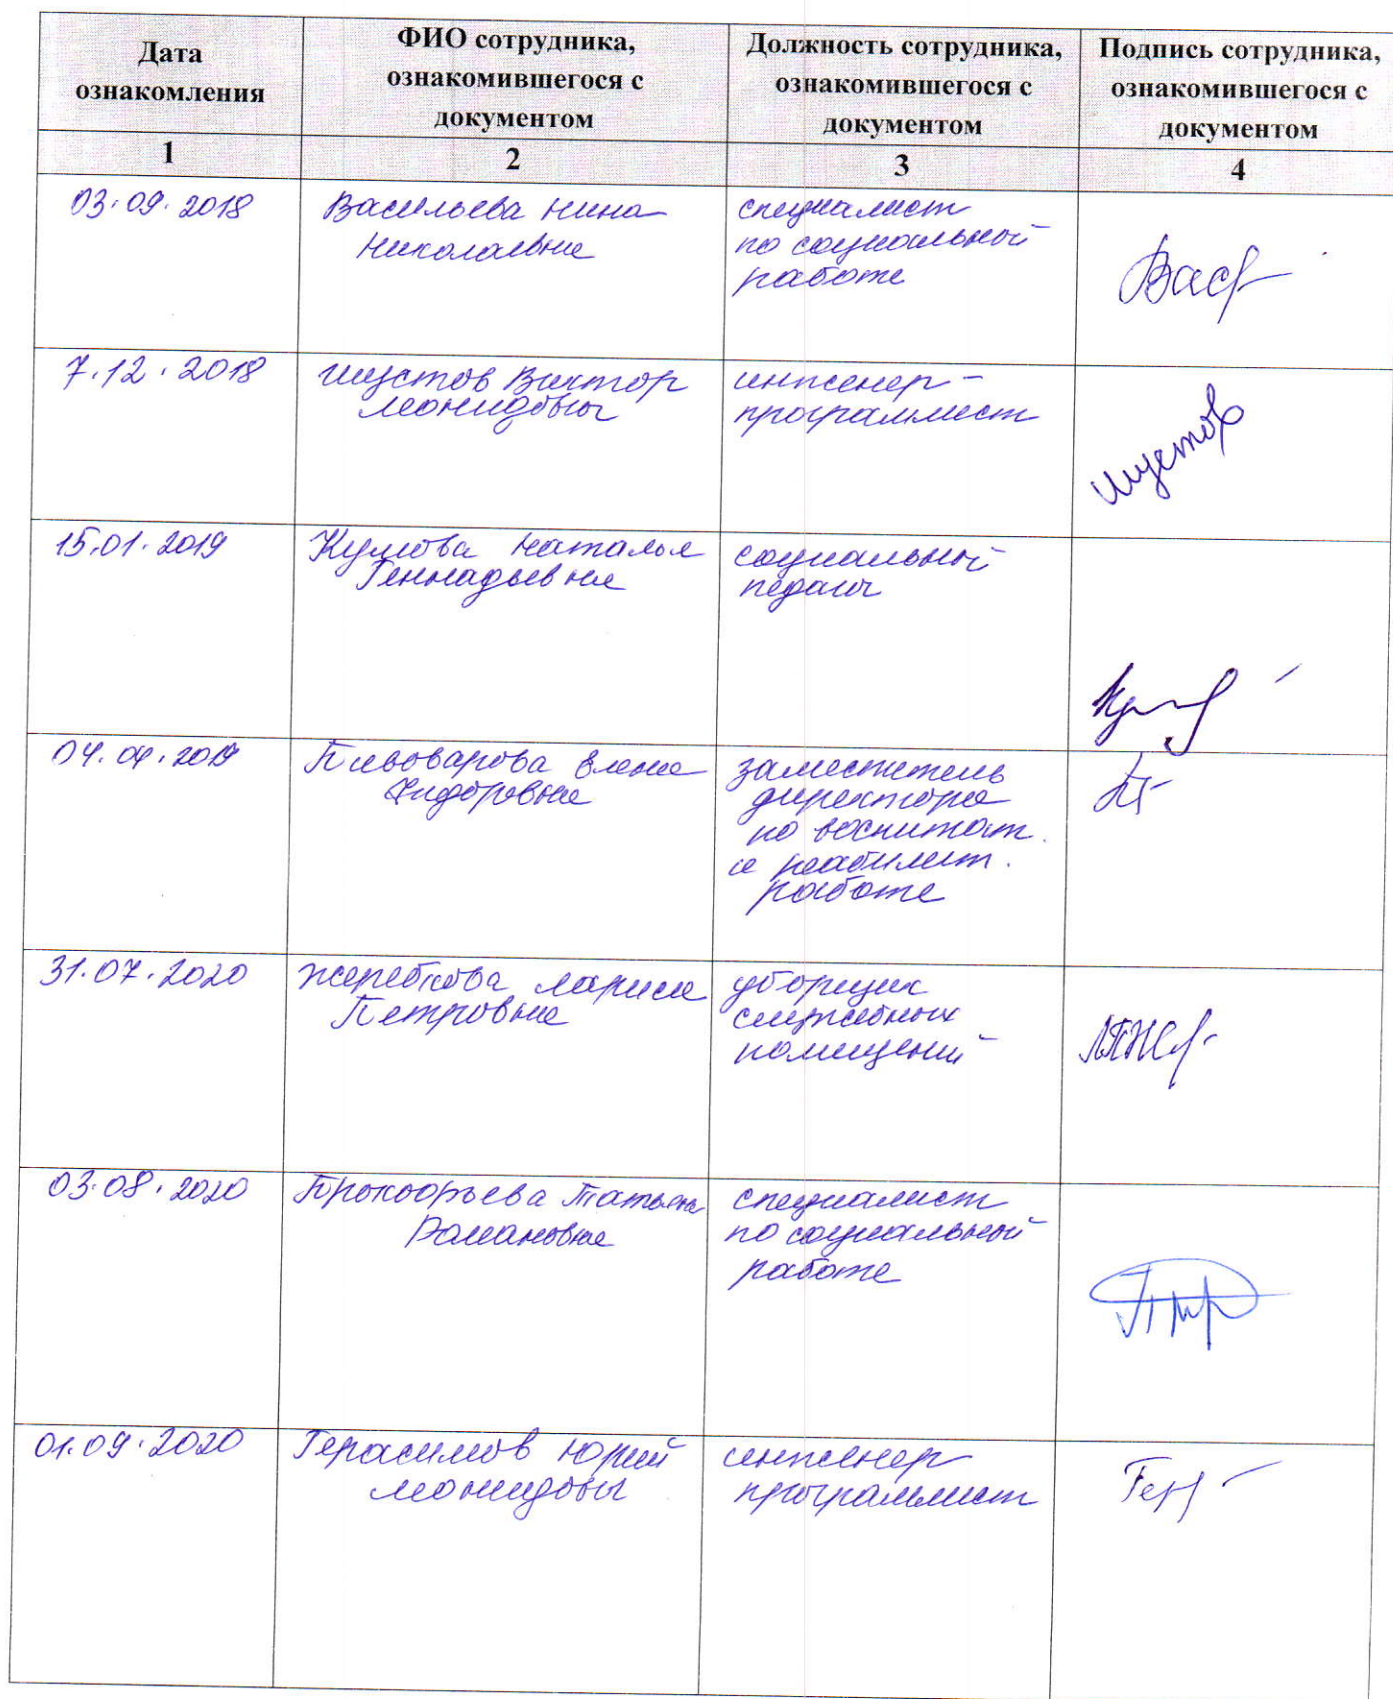 Дата
ознакомления
ФИО сотрудника,
ознакомившегося с
документом
Должность сотрудника,
ознакомившегося с
документом
Подпись сотрудника,
ознакомившегося с
документом
1
2
3
4
03.09.2018
Васильева Нина
Николаевна
специалист
по социальной
работе
Вас
7.12.2018
Шустов Виктор
Леонидович
инженер-
программист
Шустов
15.01.2019
Наталья
Геннадьевна
социальный
педагог
04.04.2019
Пивоварова Елена
Фидоровна
заместитель
директора
по воспитат.
и реабилит.
работе
31.07.2020
Жеребкова Лариса
Петровна
уборщик
служебных
помещений
03.08.2020
Прокофьева Татьяна
Романовна
специалист
по социальной
работе
01.09.2020
Герасимов Юрий
Леонидович
инженер
программист
Гер